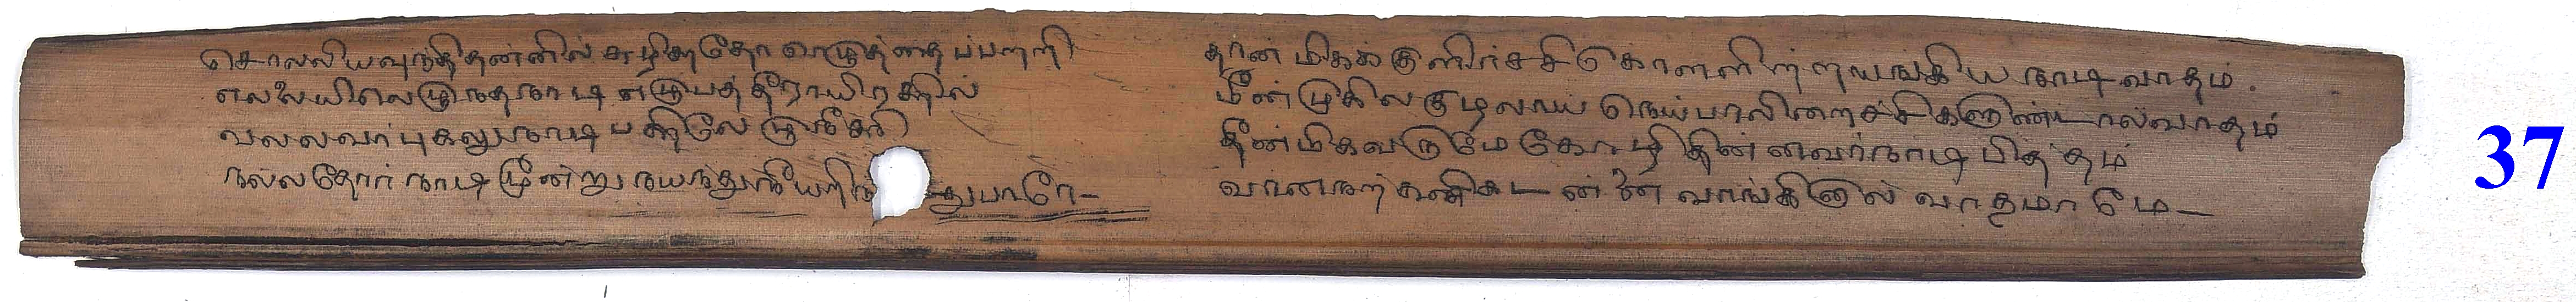 சொல்லியவுந்தி தன்னில் சுழிசுதோ வெழுத்தைப்பற்றி
எல்லையிலெழுந்த நாடி எழுபத்தீராயிரத்தில்
வல்லவர் புகலு நாடி பத்திலே
நல்லதோர் நாடி மூன்று நயந்து நீயறிந் துபாரே
தான் மிகக் குளிர்ச்சி கொள்ளில் றயங்கிய நாடி வாதம்
மீன் முகில குழலாய் நெய்பாலிறைச்சிகளுண்டால் வாதம்
தீன் மிகவருமே கோழி தின்னவர் நாடி பித்தம்
வானநற் கனிகடன்னை வாங்கினால் வாதமாமே
37